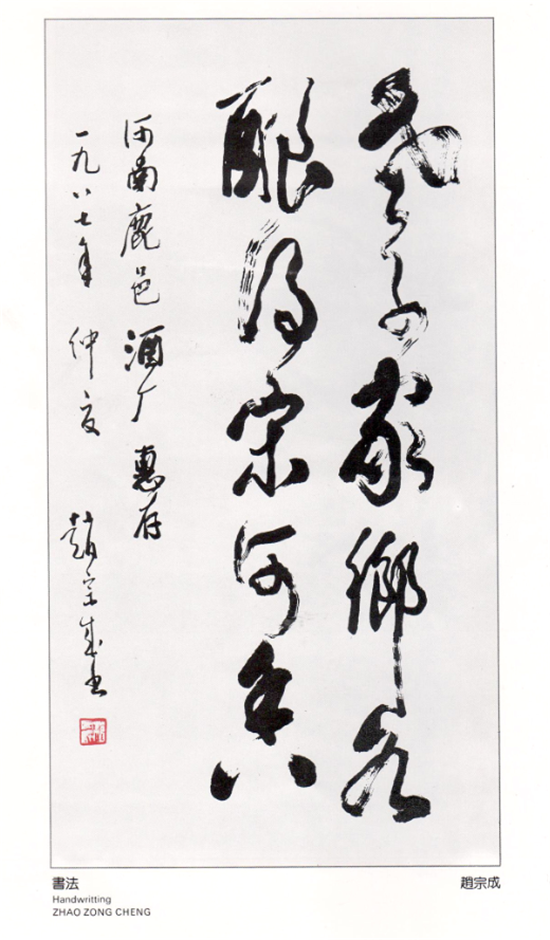 老子家鄉水
釀得宋河香
河南鹿邑酒厂惠存
一九八七年 仲夏 趙宗成书
書法
趙宗成
Handwritting
ZHAO ZONG CHENG